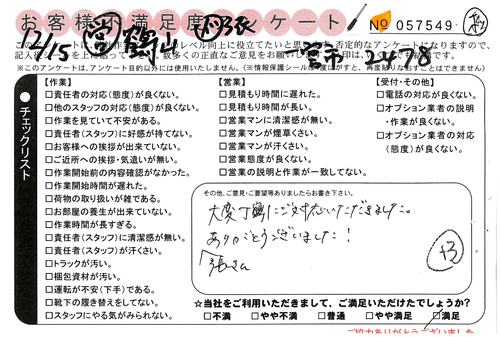 お客様満足度アンケート
No 057549
12/15
2478
※このアンケートは、アンケート目的以外には使用いたしません。
● チェックリスト
【作業】
□責任者の対応(態度)が良くない。
□他のスタッフの対応(態度)が良くない。
□作業を見ていて不安がある。
□責任者(スタッフ)に好感が持てない。
□お客様への挨拶が出来ていない。
□ご近所への挨拶・気遣いが無い。
□作業開始前の内容確認がなかった。
□作業開始時間が遅れた。
□荷物の取り扱いが雑である。
□お部屋の養生が出来ていない。
□作業時間が長すぎる。
□責任者(スタッフ)に清潔感が無い。
□責任者(スタッフ)が汗くさい。
□トラックが汚い。
□梱包資材が汚い。
□運転が不安(下手)である。
□靴下の履き替えをしてない。
□スタッフにやる気がみられない。
【営業】
□見積もりに遅れた。
□見積もり時間が長い。
□営業マンに清潔感が無い。
□営業マンが煙草くさい。
□営業マンが汗くさい。
□営業態度が良くない。
□営業の説明と作業が一致してない。
【受付・その他】
□電話の対応が良くない。
□オプション業者の説明・作業が良くない。
□オプション業者の対応(態度)が良くない。
その他、ご意見・ご要望等ありましたらお書き下さい。
大変丁寧にご対応いただきました。
ありがとうございました!
+3
☆当社をご利用いただきまして、ご満足いただけたでしょうか?
□不満 □やや不満 □普通 □やや満足 □満足
ご協力ありがとうございました